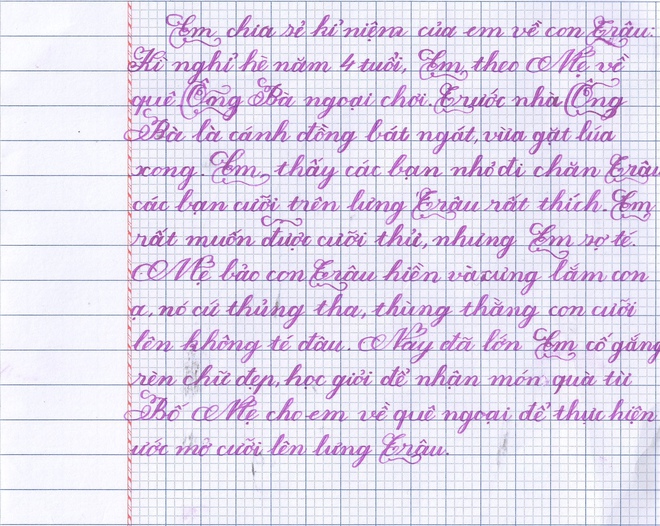 Em chia sẻ kỉ niệm của em về con Trâu:
Kì nghỉ hè năm 4 tuổi, Em theo Mẹ về
quê Ông Bà ngoại chơi. Trước nhà Ông
Bà là cánh đồng bát ngát, vừa gặt lúa
xong. Em thấy các bạn nhỏ đi chăn Trâu
các bạn cưỡi trên lưng Trâu rất thích. Em
rất muốn được cưỡi thử, nhưng Em sợ té.
Mẹ bảo con Trâu hiền và cưng lắm con
ạ, nó cứ thủng tha, thùng thằng con cưỡi
lên không té đâu. Nay đã lớn Em cố gắng
rèn chữ đẹp, học giỏi để nhận món quà từ
Bố Mẹ cho em về quê ngoại để thực hiện
ước mơ cưỡi lên lưng Trâu.